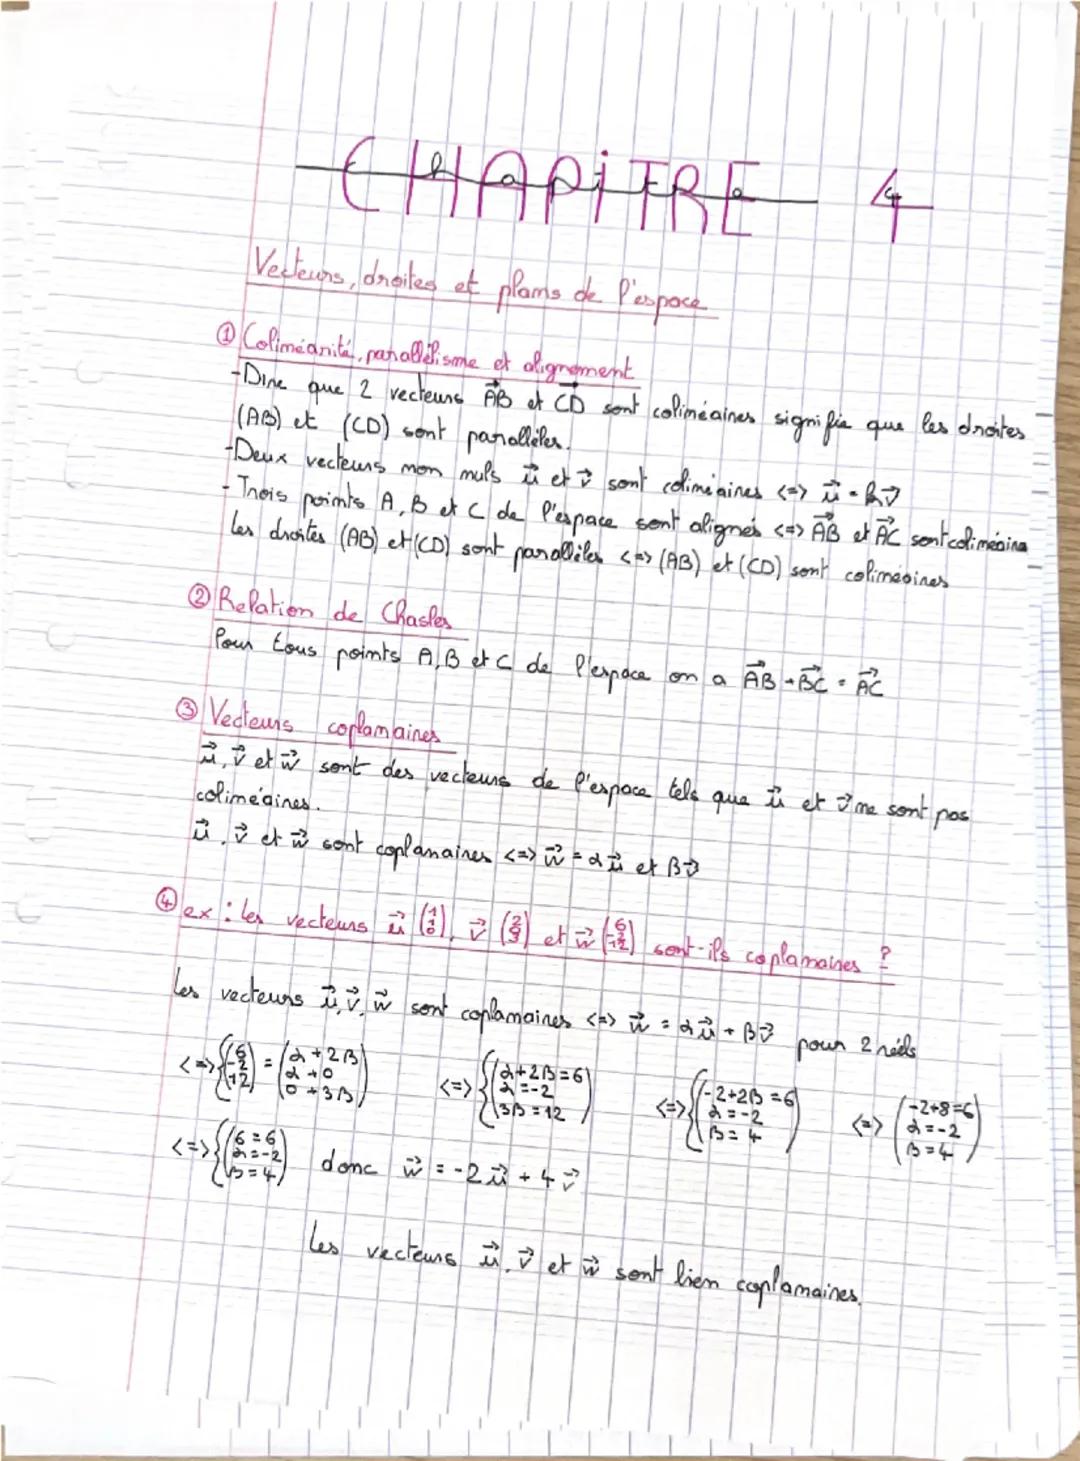 CHAPITRE 4
Vecteurs, droites et plans de l'espace
① Colinéarité, parallélisme et alignement
-Dire que 2 vecteurs AB→ et CD→ sont colinéaires signifie que les droites
(AB) et (CD) sont parallèles.
-Deux vecteurs non nuls u→ et v→ sont colinéaires <=> u→ = kv→
- Trois points A, B et C de l'espace sont alignés <=> AB→ et AC→ sont colinéaire
Les droites (AB) et (CD) sont parallèles <=> (AB) et (CD) sont colinéaires
② Relation de Chasles
Pour tous points A, B et C de l'espace on a AB→ + BC→ = AC→
③ Vecteurs coplanaires
u→, v→ et w→ sont des vecteurs de l'espace tels que u→ et v→ ne sont pas
colinéaires.
u→, v→ et w→ sont coplanaires <=> w→ = αu→ et βv→
④ ex : les vecteurs u→ (1 1 0), v→ (2 0 3) et w→ (6 -2 12) sont-ils coplanaires ?
Les vecteurs u→, v→, w→ sont coplanaires <=> w→ = αu→ + βv→ pour 2 réels
<=> {(6 -2 12) = (α + 2β α + 0 0 + 3β) <=> {(α + 2β = 6 α = -2 3β = 12) <=> {(-2 + 2β = 6 α = -2 β = 4) <=> (-2 + 8 = 6 α = -2 β = 4)
<=> {(6 = 6 α = -2 β = 4) donc w→ = -2u→ + 4v→
Les vecteurs u→, v→ et w→ sont bien coplanaires.